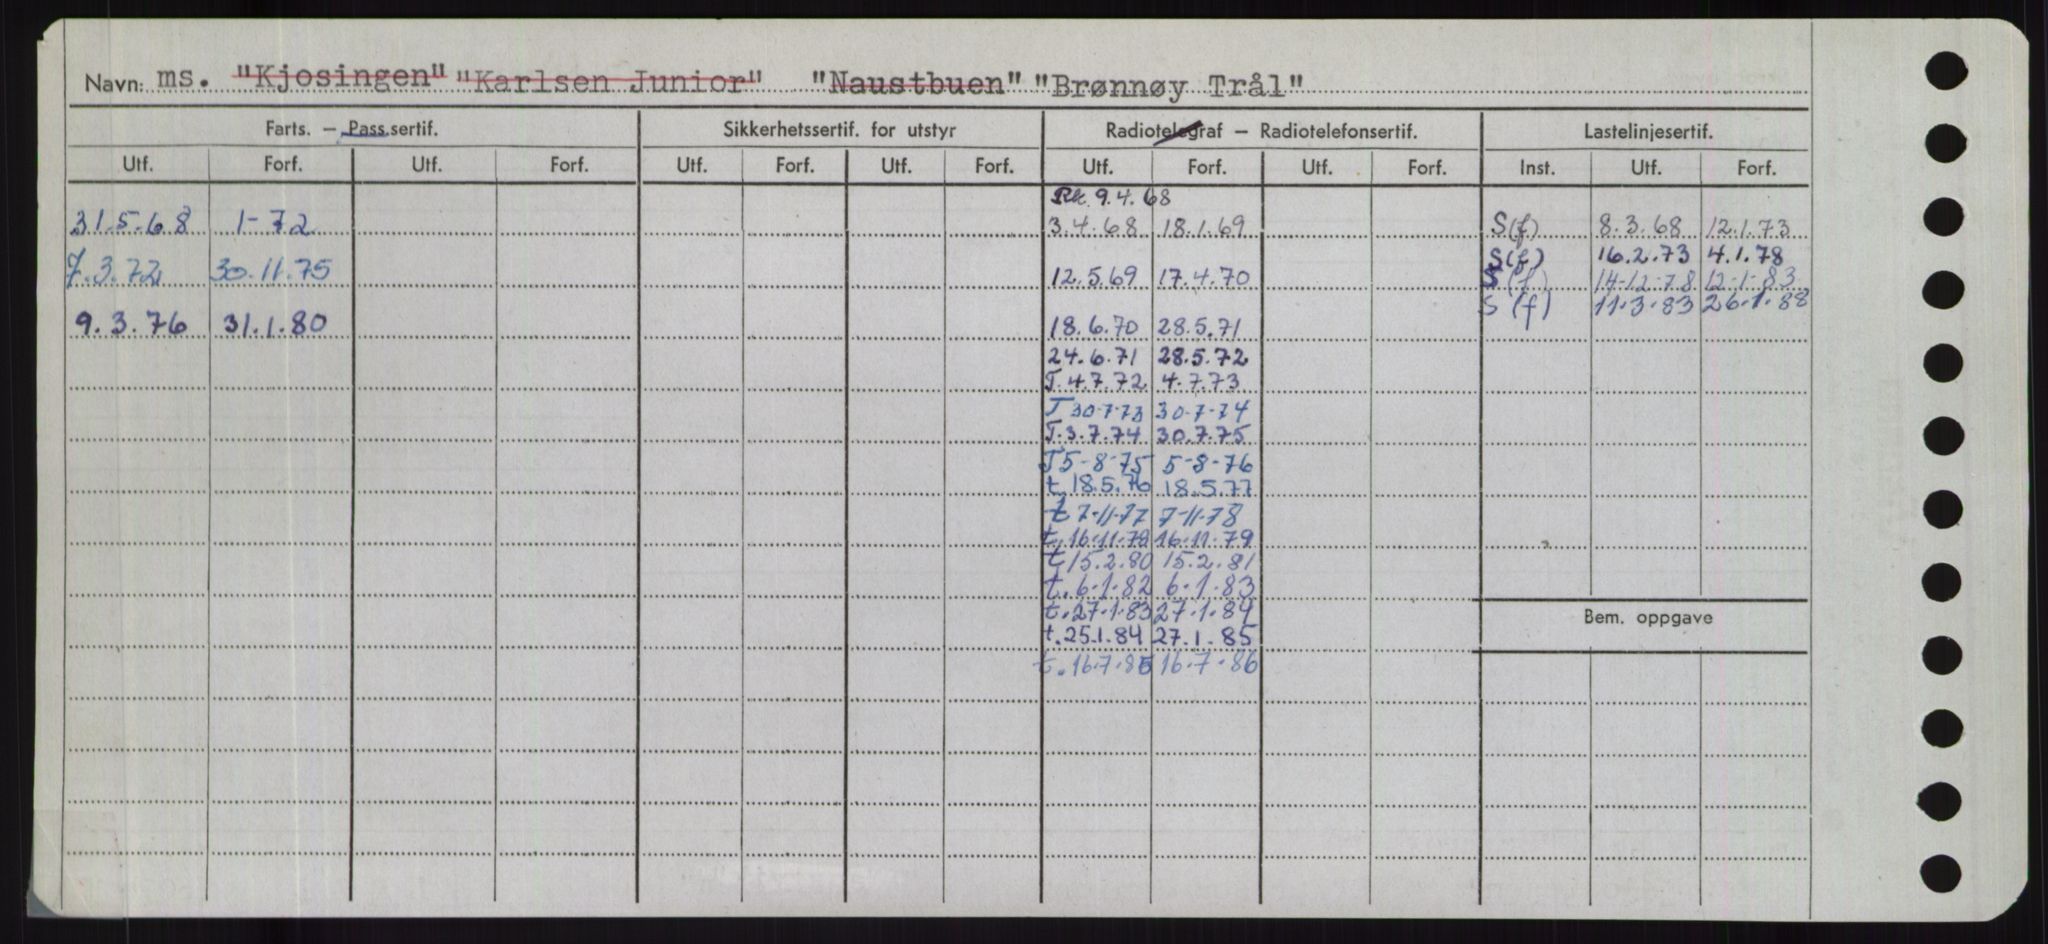 Navn: ms. "Kjosingen" "Karlsen Junior" "Naustbuen" "Brønnøy Trål"
Farts. – Pass.sertif. Sikkerhetssertif. for utstyr Radiotelegraf – Radiotelefonsertif. Lastelinjesertif.
Utf. Forf. Utf. Forf. Utf. Forf. Utf. Forf. Utf. Forf. Utf. Forf. Inst. Utf. Forf.
9.4.68
31.5.68 1-72 3.4.68 18.1.69 S(f) 8.3.68 12.1.73
S(f) 16.2.73 4.1.78
7.3.72 30.11.75 12.5.69 17.4.70 S(f) 14-12-78 12-1-83
S(f) 11.3.83 26.1.88
9.3.76 31.1.80 18.6.70 28.5.71
24.6.71 28.5.72
T.4.7.72 4.7.73
T 30-7-73 30-7-74
T.3.7.74 30.7.75
T 5-8-75 5-8-76
t. 18.5.76 18.5.77
t 7-11-77 7-11-78
t. 16.11.78 16.11.79
t 15.2.80 15.2.81
t. 6.1.82 6.1.83
t. 27.1.83 27.1.84
t. 25.1.84 27.1.85
t. 16.7.85 16.7.86
Bem. oppgave